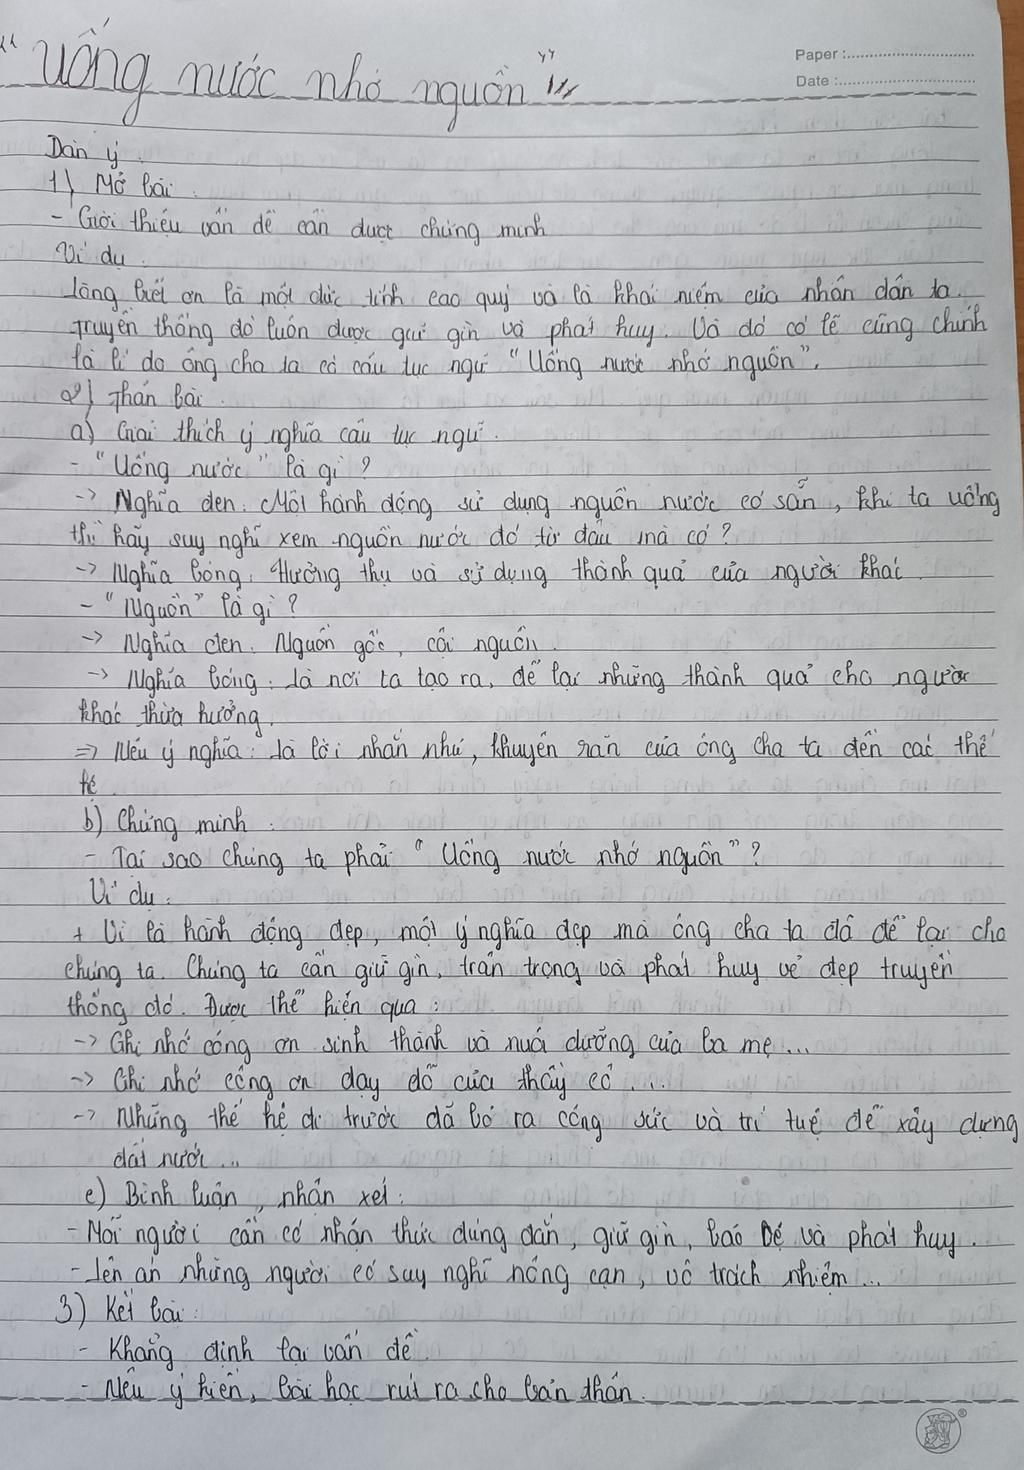 "Uống nước nhớ nguồn"
Paper :
Date :
Dàn ý.
1) Mở bài :
- Giới thiệu vấn đề cần được chứng minh
Ví dụ :
Lòng biết ơn là một đức tính cao quý và là khái niệm của nhân dân ta.
Truyền thống đó luôn được giữ gìn và phát huy. Và đó có lẽ cũng chính
là lí do ông cha ta có câu tục ngữ "Uống nước nhớ nguồn".
2) Thân bài :
a) Giải thích ý nghĩa câu tục ngữ.
- "Uống nước" là gì ?
-> Nghĩa đen : Một hành động sử dụng nguồn nước có sẵn, khi ta uống
thì hãy suy nghĩ xem nguồn nước đó từ đâu mà có ?
-> Nghĩa bóng : Hưởng thụ và sử dụng thành quả của người khác.
- "Nguồn" là gì ?
-> Nghĩa đen : Nguồn gốc, cội nguồn.
-> Nghĩa bóng : Là nơi ta tạo ra, để lại những thành quả cho người
khác thừa hưởng.
=> Nêu ý nghĩa : Là lời nhắn nhủ, khuyên răn của ông cha ta đến các thế
hệ.
b) Chứng minh :
- Tại sao chúng ta phải "Uống nước nhớ nguồn" ?
Ví dụ :
+ Vì là hành động đẹp, một ý nghĩa đẹp mà ông cha ta đã để lại cho
chúng ta. Chúng ta cần giữ gìn, trân trọng và phát huy vẻ đẹp truyền
thống đó. Được thể hiện qua :
-> Ghi nhớ công ơn sinh thành và nuôi dưỡng của ba mẹ...
-> Ghi nhớ công ơn dạy dỗ của thầy cô ...
-> Những thế hệ đi trước đã bỏ ra công sức và trí tuệ để xây dựng
đất nước...
c) Bình luận, nhận xét :
- Mỗi người cần có nhận thức đúng đắn, giữ gìn, bảo vệ và phát huy.
- Lên án những người có suy nghĩ nông cạn, vô trách nhiệm...
3) Kết bài :
- Khẳng định lại vấn đề.
- Nêu ý kiến, bài học rút ra cho bản thân.